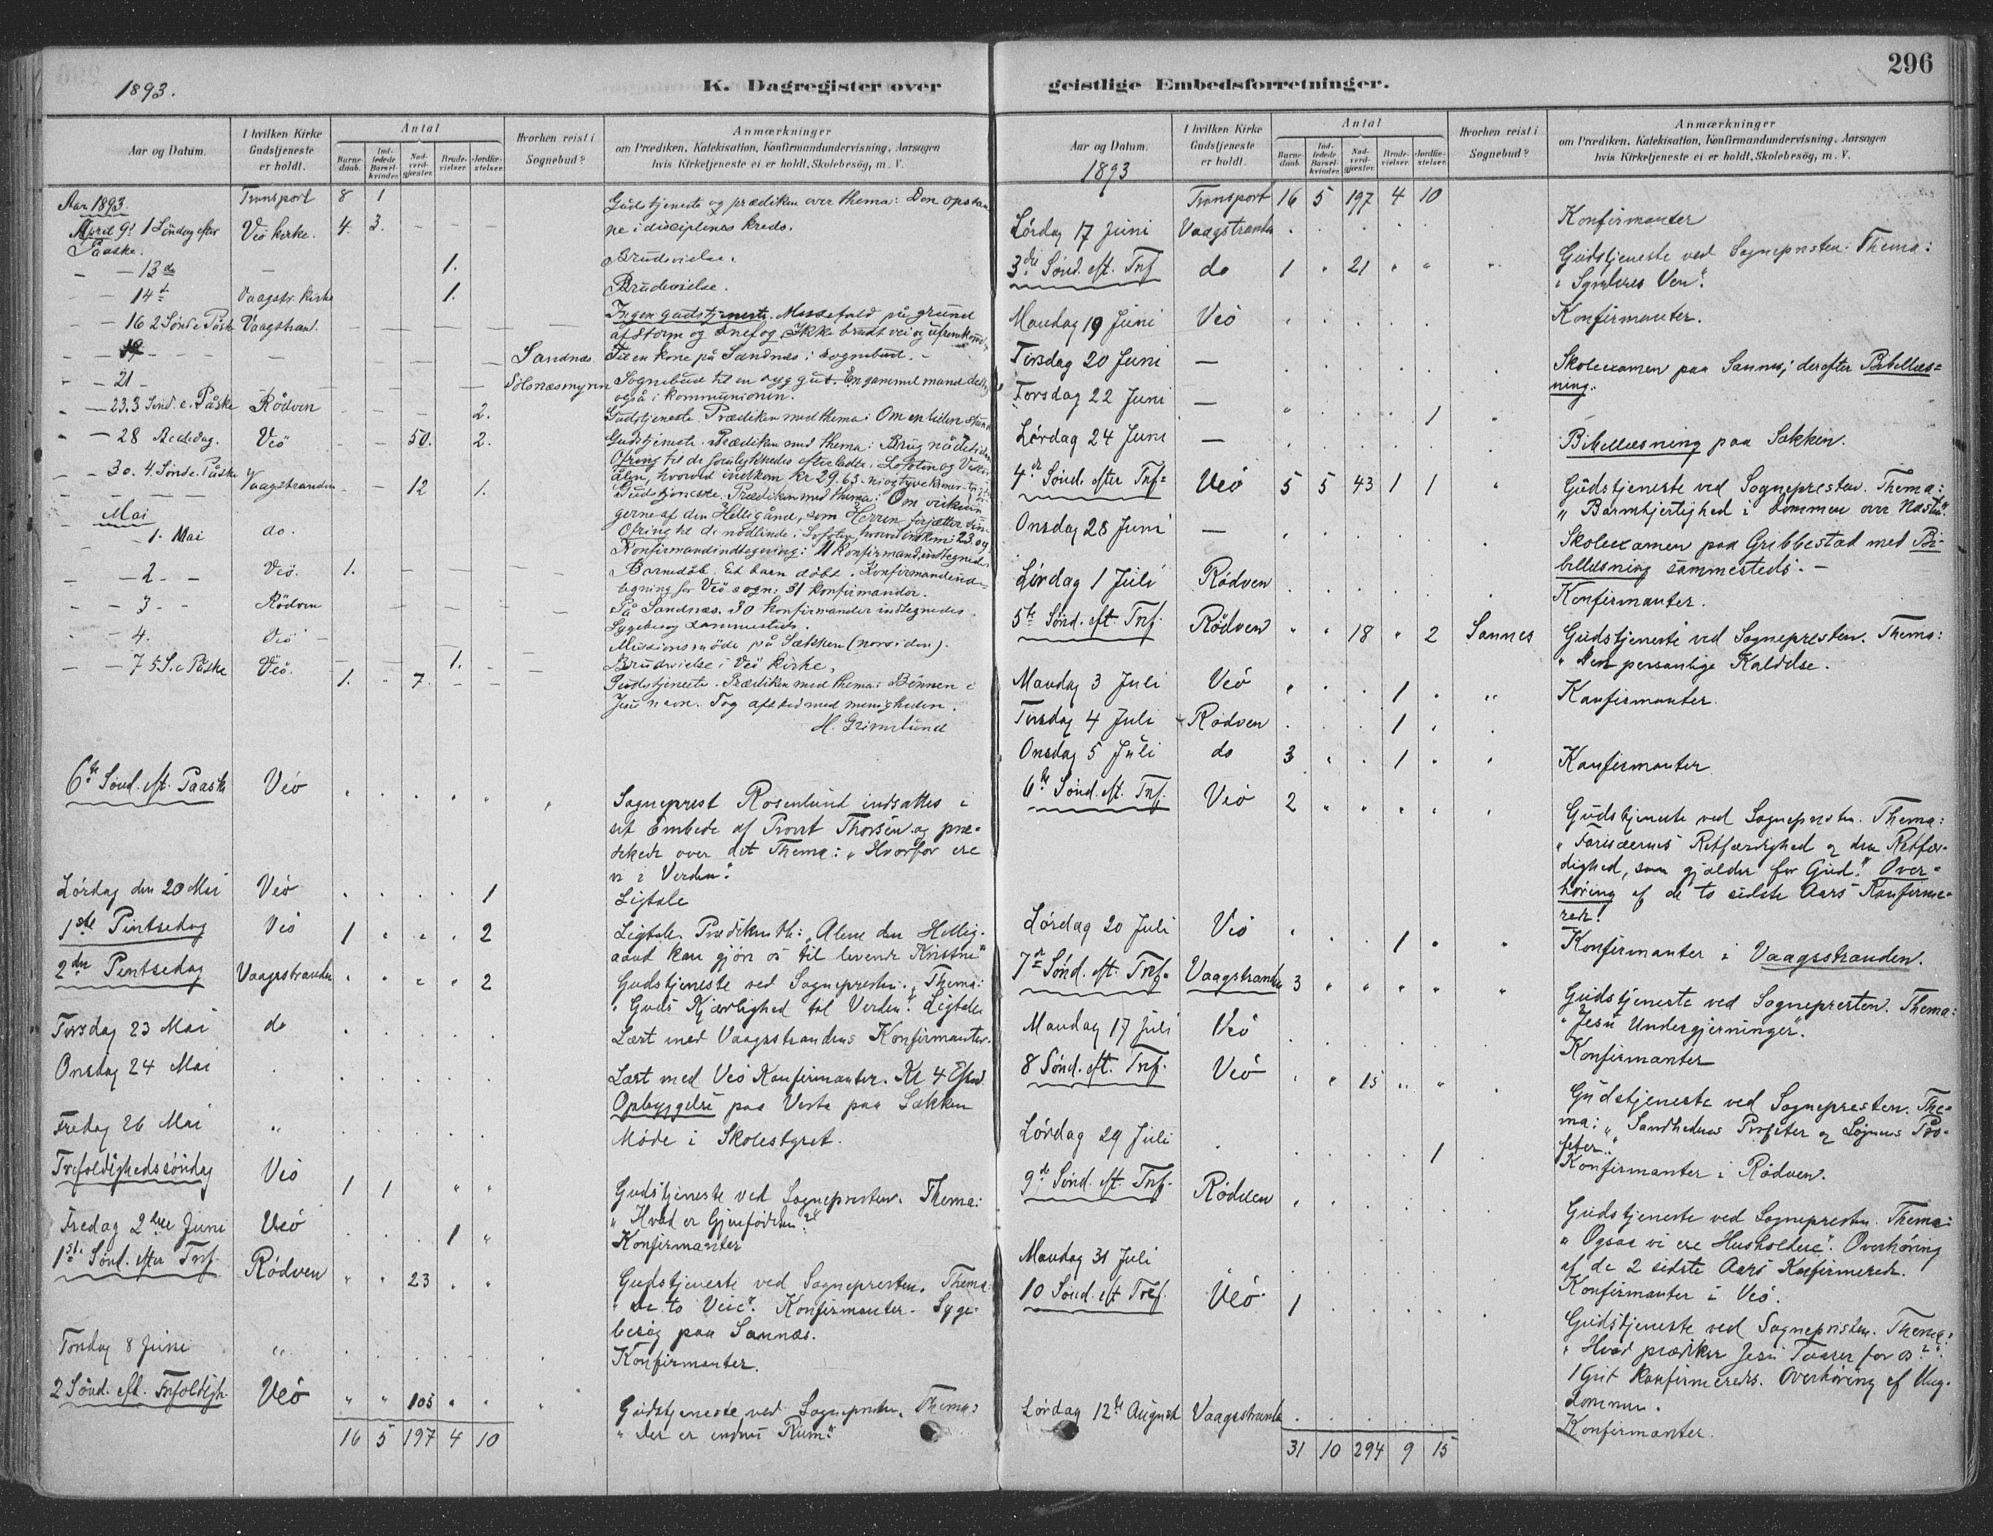 296
1893.
K. Dagregister over
Aar og Datum.
I hvilken Kirke Gudstjeneste er holdt.
Antal
Barne-daab.
Ind-ledede Barsel-kvinder.
Nad-verd-gjæster.
Brude-vielser.
Jordfæ-stelser.
Hvorhen reist i Sognebud?
Anmærkninger
om Prædiken, Katekisation, Konfirmandundervisning, Aarsagen
hvis Kirketjeneste ei er holdt, Skolebesøg, m. V.
Aar 1893. Transport 8 1
April 9d 1 Søndag efter Paaske. Veö kirke. 4. 3. — — — Gudstjeneste og prædiken over thema: Den opstan
ne i disciplenes kreds.
— — 13de — 1. Brudevielse.
— — 14d Vaagstr. kirke 1. Brudevielse.
— — 16 2 Sönd e Påske Vaagstran. — — — Ingen gudstjeneste. Messefald på grund
af storm og snefog. Ikke brudt vei og ufremkom
— — 19 — — Sandnæs. Til en kone på Sandnæs i sognebud. —
— — 21 — Sognebud til en syg gut. En gammel mand deltog
også i kommunionen.
— — 23. 3 Sönd. e. Påske Rödven — — — 2. Gudstjeneste. Prædiken med thema: Om en liden stund
— — 28 Bededag. Veö — — 50. 2. Gudstjeneste. Prædiken med thema: Brug nådetiden
Ofring til de forulykkedes efterladte i Lofoten og Vester
ålen, hvorved indkom kr 29.63
— 30. 4. Sönd e. Påske Vaagstranden — — 12 1. Gudstjeneste. Prædiken med thema: Om virknin
gerne af den Helligånd, som Herren forjætter sine
Mai
1. Mai do. Ofring til de nødlidende i Lofoten, hvorved indkom: 23.09
Konfirmandindtegning: 11 konfirmand indtegnede
— 2 — Veö. 1. — — Barnedöb. Et barn döbt. Konfirmandind-
tegning for Veö sogn: 31 konfirmander.
— 3 — Rödven — — På Sandnæs. 30 konfirmander indtegnedes.
Sygebesög sammesteds.
— 4. Veö — Missionsmöde på Sækken (norsiden).
— 7 5 S. e Påske Veö. 1. 7. 1. — Brudevielse i Veö kirke.
Gudstjeneste. Prædiken med thema: Bönnen i
Jesu navn. Tog afsked med menigheden.
H. Grimelund
6te Sønd. eft. Paaske Veö Sogneprest Rosenlund indsattes i
sit Embede af Provst Thorsen og præ-
dikede over det Thema: „Hvorfor ere
vi i Verden?
Lørdag den 20 Mai Veö 1 Ligtale
1ste Pintsedag Veö 1 2 Ligtale. Prædiken th: „Alene den Hellig-
aand kan gjøre os til levende Kristne"
2den Pintsedag Vaagstranden 2 Gudstjeneste ved Sognepresten. Thema:
„Guds Kjærlighed til Verden". Ligtale
Tirsdag 23 Mai do Læst med Vaagstrandens Konfirmanter.
Onsdag 24 Mai Læst med Veö Konfirmanter. Kl 4 Efmd.
Opbyggelse paa Vesta paa Sækken
Fredag 26 Mai „ Møde i Skolestyret.
Trefoldighedssøndag Veö 1 1 „ „ Gudstjeneste ved Sognepresten. Thema:
„Hvad er Gjenfødelsen?"
Fredag 2den Juni Veö 1 „ Konfirmanter
1ste Sønd. efter Tref. Rødven „ „ 23 Gudstjeneste ved Sognepresten. Thema
„de to Veie". Konfirmanter. Syge-
besøg paa Sannæs.
Torsdag 8 Juni „ Konfirmanter.
2 Sønd. eft. Trefoldigh. Veö „ „ 105 Gudstjeneste ved Sognepresten. Thema:
„Der er endnu Rum."
16 5 197 4 10
geistlige Embedsforretninger.
Aar og Datum.
1893
I hvilken Kirke Gudstjeneste er holdt.
Antal
Barne-daab.
Ind-ledede Barsel-kvinder.
Nad-verd-gjæster.
Brude-vielser.
Jordfæ-stelser.
Hvorhen reist i Sognebud?
Anmærkninger
om Prædiken, Katekisation, Konfirmandundervisning, Aarsagen
hvis Kirketjeneste ei er holdt, Skolebesøg, m. V.
Transport 16 5 197 4 10
Lørdag 17 Juni Vaagstranden Konfirmanter
3die Sønd. eft. Tref do 1 „ 21 „ „ Gudstjeneste ved Sognepresten. Thema:
„Synderes Ven".
Mandag 19 Juni Veö Konfirmanter.
Tirsdag 20 Juni — Skoleexamen paa Sannes; derefter Bibellæs-
ning.
Torsdag 22 Juni — 1
Lørdag 24 Juni — Bibellæsning paa Sækken.
4de Sønd. efter Tref. Veö 5 5 43 1 1 Gudstjeneste ved Sognepresten. Thema:
„Barmhjertighed i Dommen over Næsten"
Onsdag 28 Juni — Skoleexamen paa Gribbestad med Bi-
bellæsning sammesteds. —
Lørdag 1 Juli Rødven Konfirmanter.
5te Sønd. eft Tref. Rødven „ „ 18 „ 2 Sannes Gudstjeneste ved Sognepresten. Thema:
„Den personlige Kaldelse.
Mandag 3 Juli Veö 1 Konfirmanter.
Tirsdag 4 Juli Rødven 1
Onsdag 5 Juli do 3 1 Konfirmanter
6te Sønd. eft. Tref. Veö 2 Gudstjeneste ved Sognepresten. Thema:
„Farisæernes Retfærdighed og den Retfær-
dighed, som gjælder for Gud". Over-
høring af de to sidste Aars Konfirme-
rede!
Lørdag 20 Juli Veö 1 Konfirmanter i Vaagstranden.
7de Sønd. eft. Tref. Vaagstranden 3 Gudstjeneste ved Sognepresten. Thema:
„Jesu Undergjerninger".
Mandag 17 Juli Veö Konfirmanter
8 Sønd. eft. Tref. Veö 15 Gudstjeneste ved Sognepresten. The-
ma: „Sandhedens Profeter og Løgnens Pro-
feter".
Lørdag 29 Juli 1 Konfirmanter i Rødven.
9de Sønd. eft Tref. Rødven Gudstjeneste ved Sognepresten. Thema:
„Ogsaa vi ere Husholdere". Overhøring
af de 2 sidste Aars Konfirmerede.
Mandag 31 Juli Konfirmanter i Veö.
10 Sønd. eft Tref. Veö 1 Gudstjeneste ved Sognepresten. Thema:
„Hvad prædiker Jesu Taarer for os?".
Konfirmerede. Overhøring af Ung-
dommen.
Lørdag 12te August Vaagstranden Konfirmanter.
31 10 294 9 15